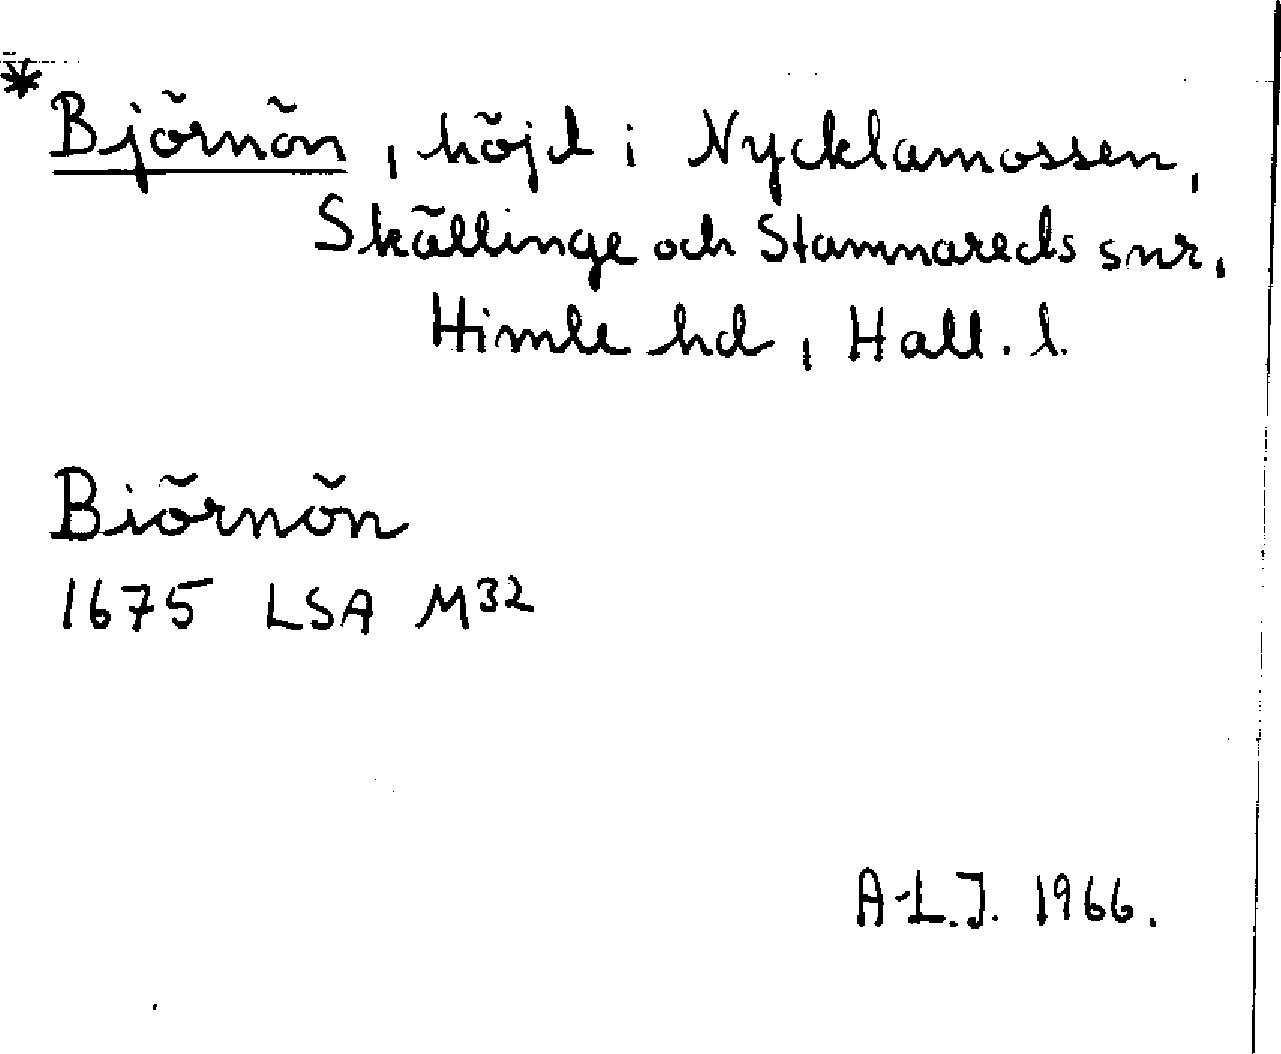 * Björnön, höjd i Nycklamossen,
Skällinge och Stamnareds snr,
Himle hd, Hall. l.
Biörnön
1675 LSA M32
A-L.J. 1966.